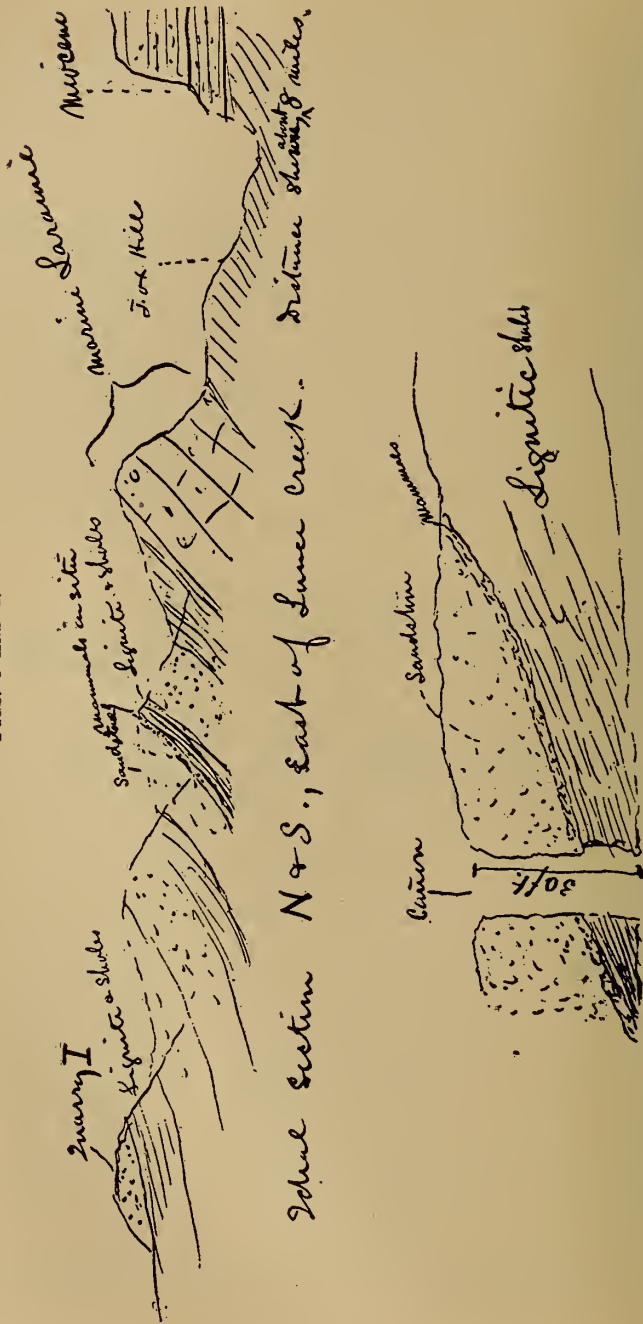 Quarry I
Lignite & Shales
Sandstone
mammals in situ
Lignite & Shales
marine Laramie
Fox Hill
Miocene
Ideal Section N & S., East of Lance Creek. Distance shown about 8 miles.
Cañon
30 ft.
Sandstone
mammals
Lignitic Shales